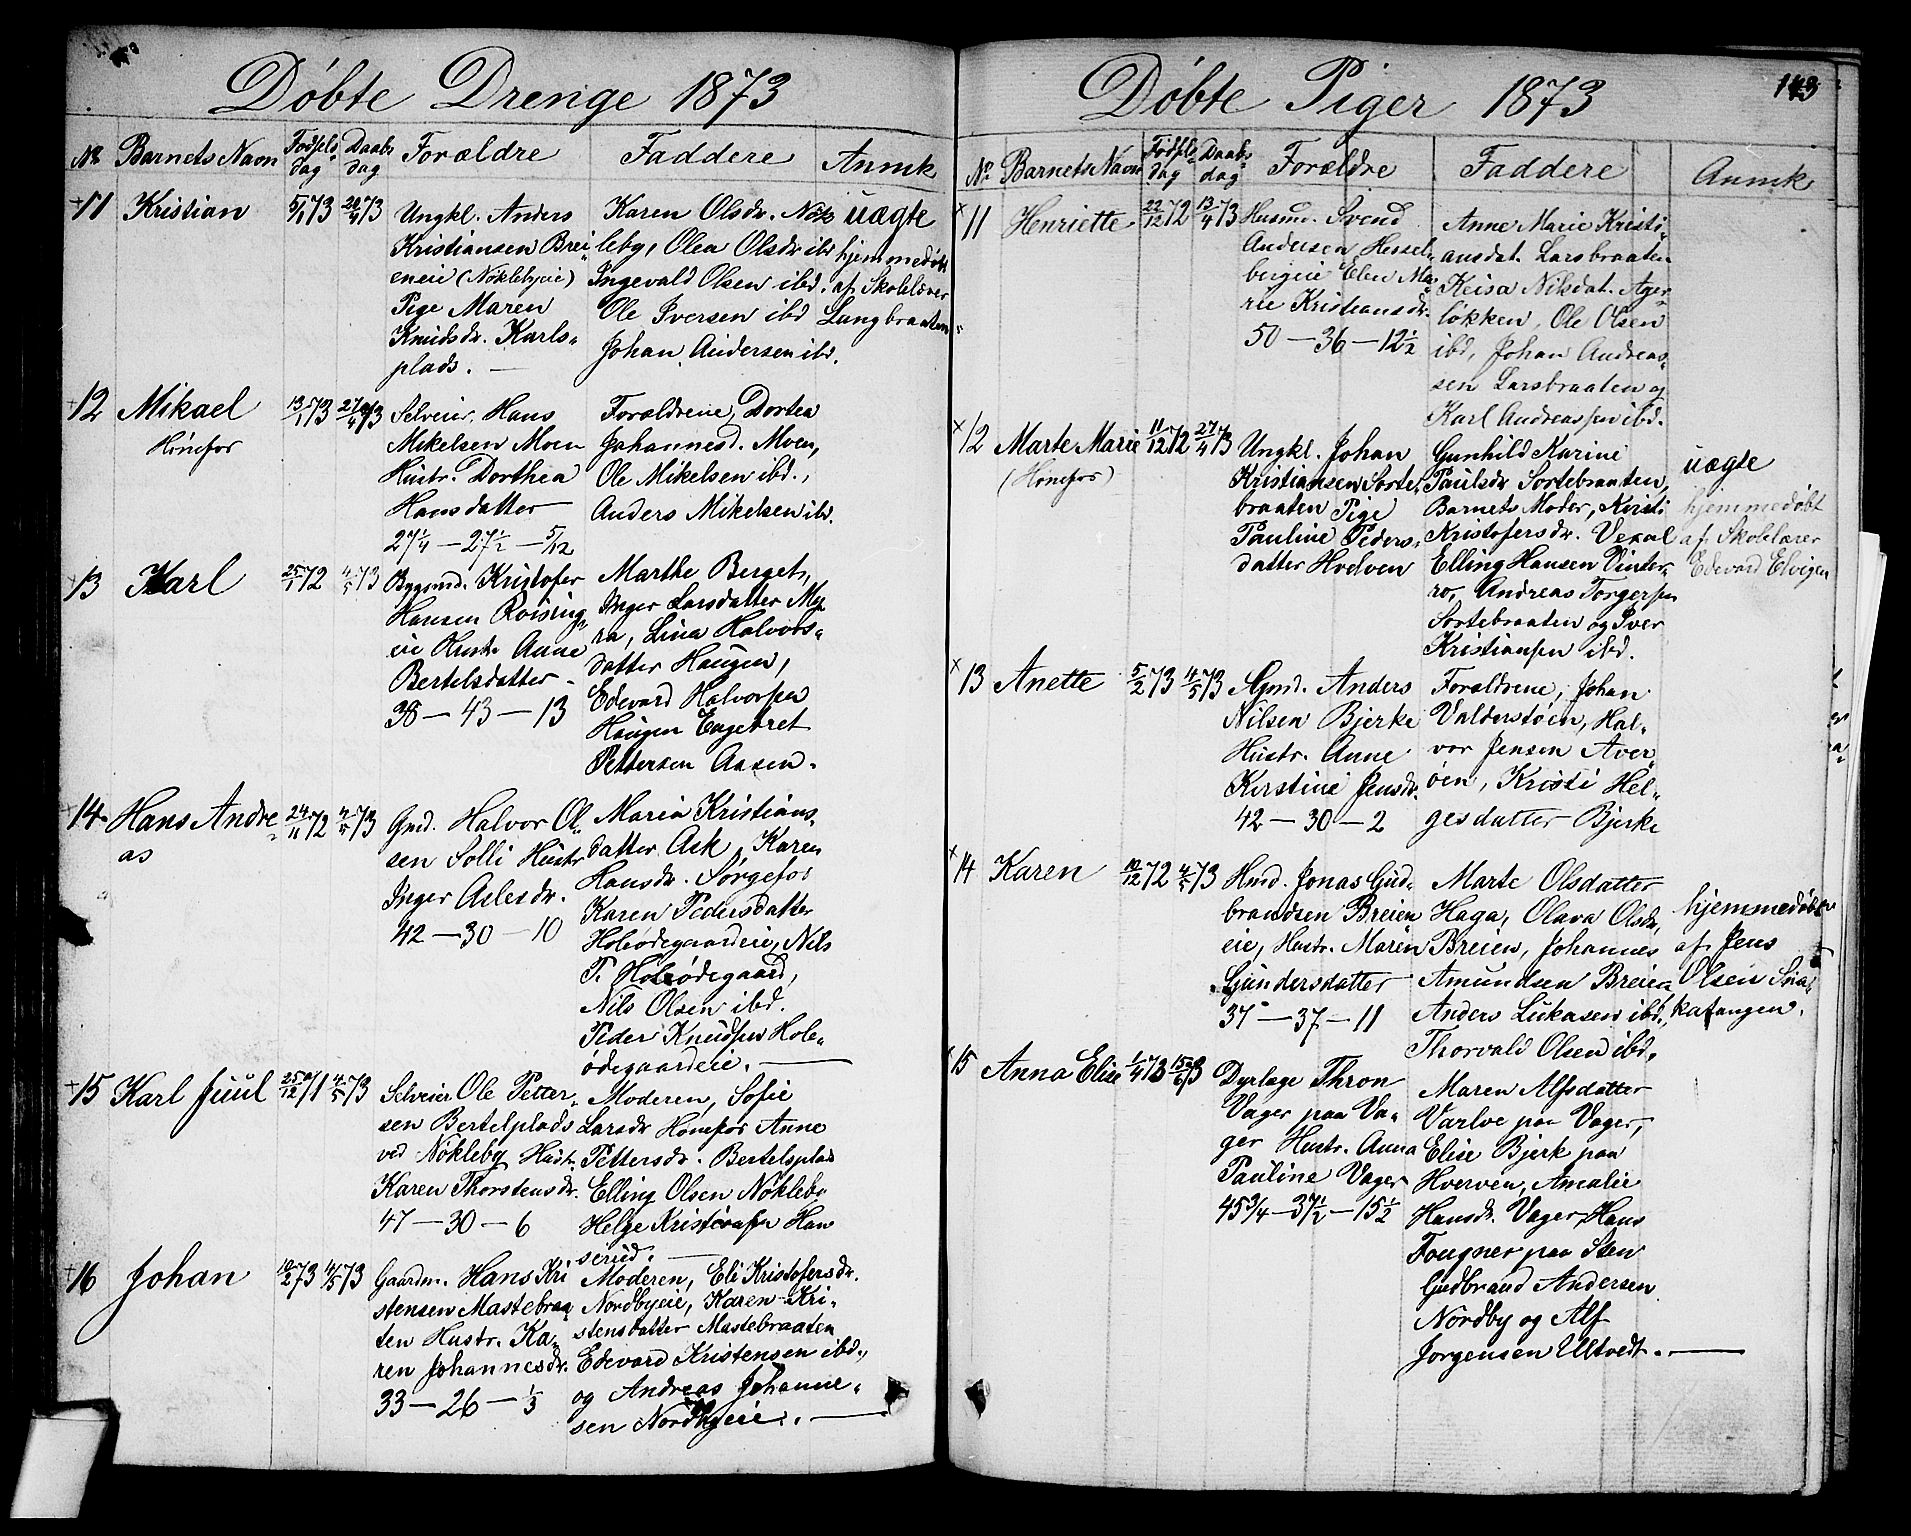 Döbte Drenge 1873
No Barnets Navn Fødsels dag Daabs dag Forældre Faddere Anmk
11 Kristian 5/1 73 20/4 73
Ungkl. Anders
Kristiansen Brei-
eneie (Nøklebyeie)
Pige Maren
Knudsdr. Karls-
plads.
Karen Olsdr. Nök
leby, Olea Olsdr ibd
Ingevald Olsen ibd.
Ole Iversen ibd
Johan Andersen ibd.
uægte
hjemmedöbt
af Skolelærer
Lungbraaten
12 Mikael
Hönefos
13/1 73 27/4 73
Selveier. Hans
Mikelsen Moen
Hustr. Dorthea
Hansdatter
27 1/4 — 27 1/2 — 5/12
Forældrene, Dortea
Johannesd. Moen,
Ole Mikelsen ibd.,
Anders Mikelsen ibd.
13 Karl 25/1 72 4/5 73
Bygsmd. Kristofer
Hansen Roising-
eie Hustr. Anne
Bertelsdatter
38 — 43 — 13
Marthe Berget,
Inger Larsdatter My
ra, Lina Halvors-
datter Haugen,
Edevard Halvorsen
Haugen Engebret
Pettersen Aasen.
14 Hans Andre
as
24/11 72 4/5 73
Gmd. Halvor Ol-
sen Solli Hustr
Inger Aslesdr.
42 — 30 — 10
Maria Kristians-
datter Ask, Karen
Hansdr. Sørgefos
Karen Pedersdatter
Holeödegaardeie, Nils
P. Holeödegaard,
Nils Olsen ibd.
Peder Knudsen Hole-
ödegaardeie.
15 Karl Juul 25/12 71 4/5 73
Selveier Ole Petter-
sen Bertelplads
ved Nökleby Hustr.
Karen Thorstensdr.
47 — 30 — 6
Moderen, Sofie
Larsdr Hönefos Anne
Pettersdr. Bertelsplads
Elling Olsen Nökleby
Helge Kristiansen Han
serud.
16 Johan 10/2 73 4/5 73
Gaardm. Hans Kri
stensen Mastebraa
ten Hustr. Ka-
ren Johannesdr.
33 — 26 — 1/3
Moderen, Eli Kristofersdr.
Nordbyeie, Karen Kri-
stensdatter Mastebraaten
Edevard Kristensen ibd.,
og Andreas Johanne-
sen Nordbyeie.
Döbte Piger 1873
143
No Barnets Navn Fødsels dag Daabs dag Forældre Faddere Anmk
11 Henriette 22/12 72 13/4 73
Husmd. Svend
Andersen Hessel-
bergeie Elen Ma-
rie Kristiansdr.
50 — 36 — 12 1/2
Anne Marie Kristi-
ansdat. Larsbraaten
Keisa Nilsdat. Ager-
lökken, Ole Olsen
ibd, Johan Andreas-
sen Larsbraaten og
Karl Andreassen ibd.
12 Marte Marie
(Hönefos)
11/12 72 27/4 73
Ungkl. Johan
Kristiansen Sorte-
braaten Pige
Pauline Peders-
datter Hvelven
Gunhild Karine
Paulsdr Sortebraaten,
Barnets Moder, Kirsti
Kristofersdr. Vexal
Elling Hansen Vinter-
ro, Andreas Torgersen
Sortebraaten og Iver
Kristiansen ibd.
uægte
hjemmedöbt
af Skolelærer
Edevard Elvigen
13 Anette 5/2 73 4/5 73
Gmd. Anders
Nilsen Bjerke
Hustr. Anne
Kerstine Jensdr.
42 — 30 — 2
Forældrene, Johan
Valderstöen, Hal-
vor Jensen Aver-
öen, Kristi Hel-
gesdatter Bjerke
14 Karen 10/12 72 4/5 73
Hmd. Jonas Gud-
brandsen Breien
eie, Hustr. Maren
Gundersdatter
37 — 37 — 11
Marte Olsdatter
Haga, Olava Olsdr,
Breien, Johannes
Amundsen Breien
Anders Lukasen ibd.,
Thorvald Olsen ibd.
hjemmedöbt
af Jens
Olsen Sna-
katangen.
15 Anna Elise 1/4 73 15/6 73
Dyrlæge Thron
Vager paa Va-
ger Hustr. Anna
Pauline Vager
45 3/4 — 37 1/2 — 15 1/2
Maren Alfsdatter
Varlve paa Vager,
Elise Bjerk paa
Hverven, Amalie
Hansdr. Vager, Hans
Fougner paa Sten
Gudbrand Andersen
Nordby og Alf
Jorgensen Ultvedt.